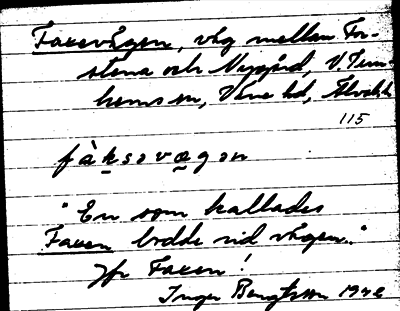 Faxevägen, väg mellan For-
stena och Nygård, V. Tun-
hems sn, Väne hd, Älvsb.
115
fàksəvægən
"En som kallades
Faxen bodde vid vägen."
Jfr Faxen!
Inger Bengtsson 1942